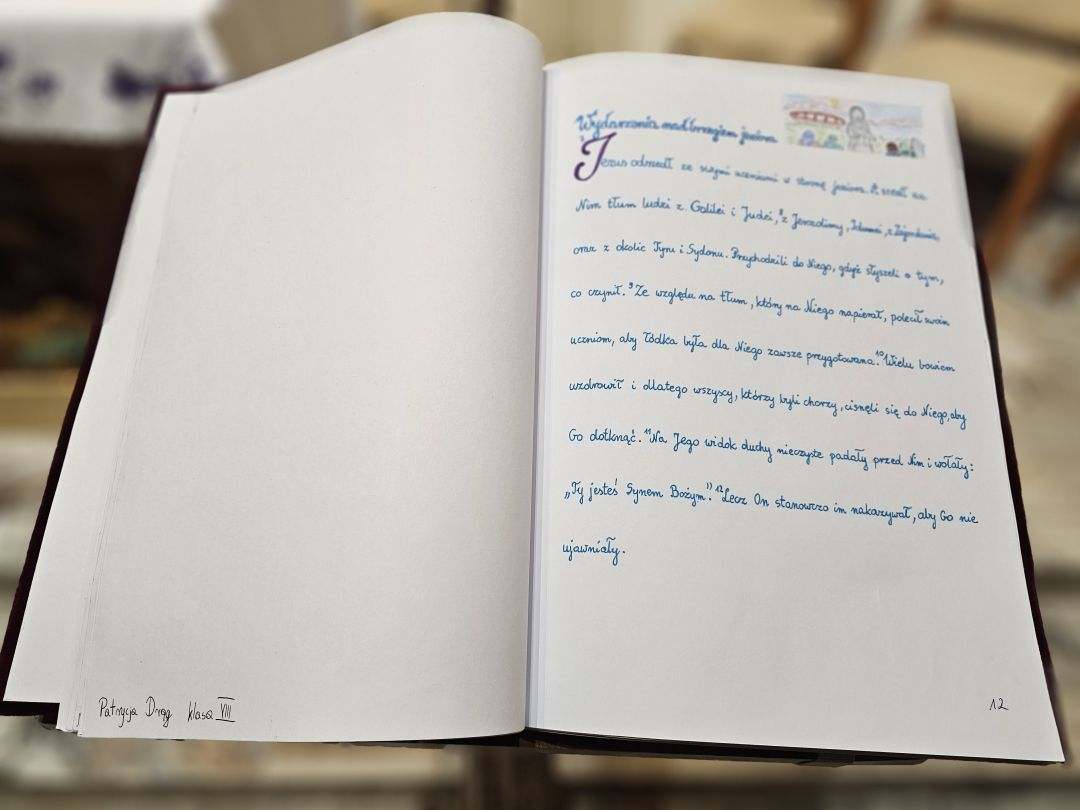 Patrycja Drąg klasa VIII
Wydarzenia nad brzegiem jeziora
7 Jezus odszedł ze swymi uczniami w stronę jeziora. A szedł za
Nim tłum ludzi z Galilei i Judei, 8 z Jerozolimy, Idumei, z Zajordania,
oraz z okolic Tyru i Sydonu. Przychodzili do Niego, gdyż słyszeli o tym,
co czynił. 9 Ze względu na tłum, który na Niego napierał, polecił swoim
uczniom, aby łódka była dla Niego zawsze przygotowana. 10 Wielu bowiem
uzdrowił i dlatego wszyscy, którzy byli chorzy, cisnęli się do Niego, aby
Go dotknąć. 11 Na Jego widok duchy nieczyste padały przed Nim i wołały:
„Ty jesteś Synem Bożym". 12 Lecz On stanowczo im nakazywał, aby Go nie
ujawniały.
12